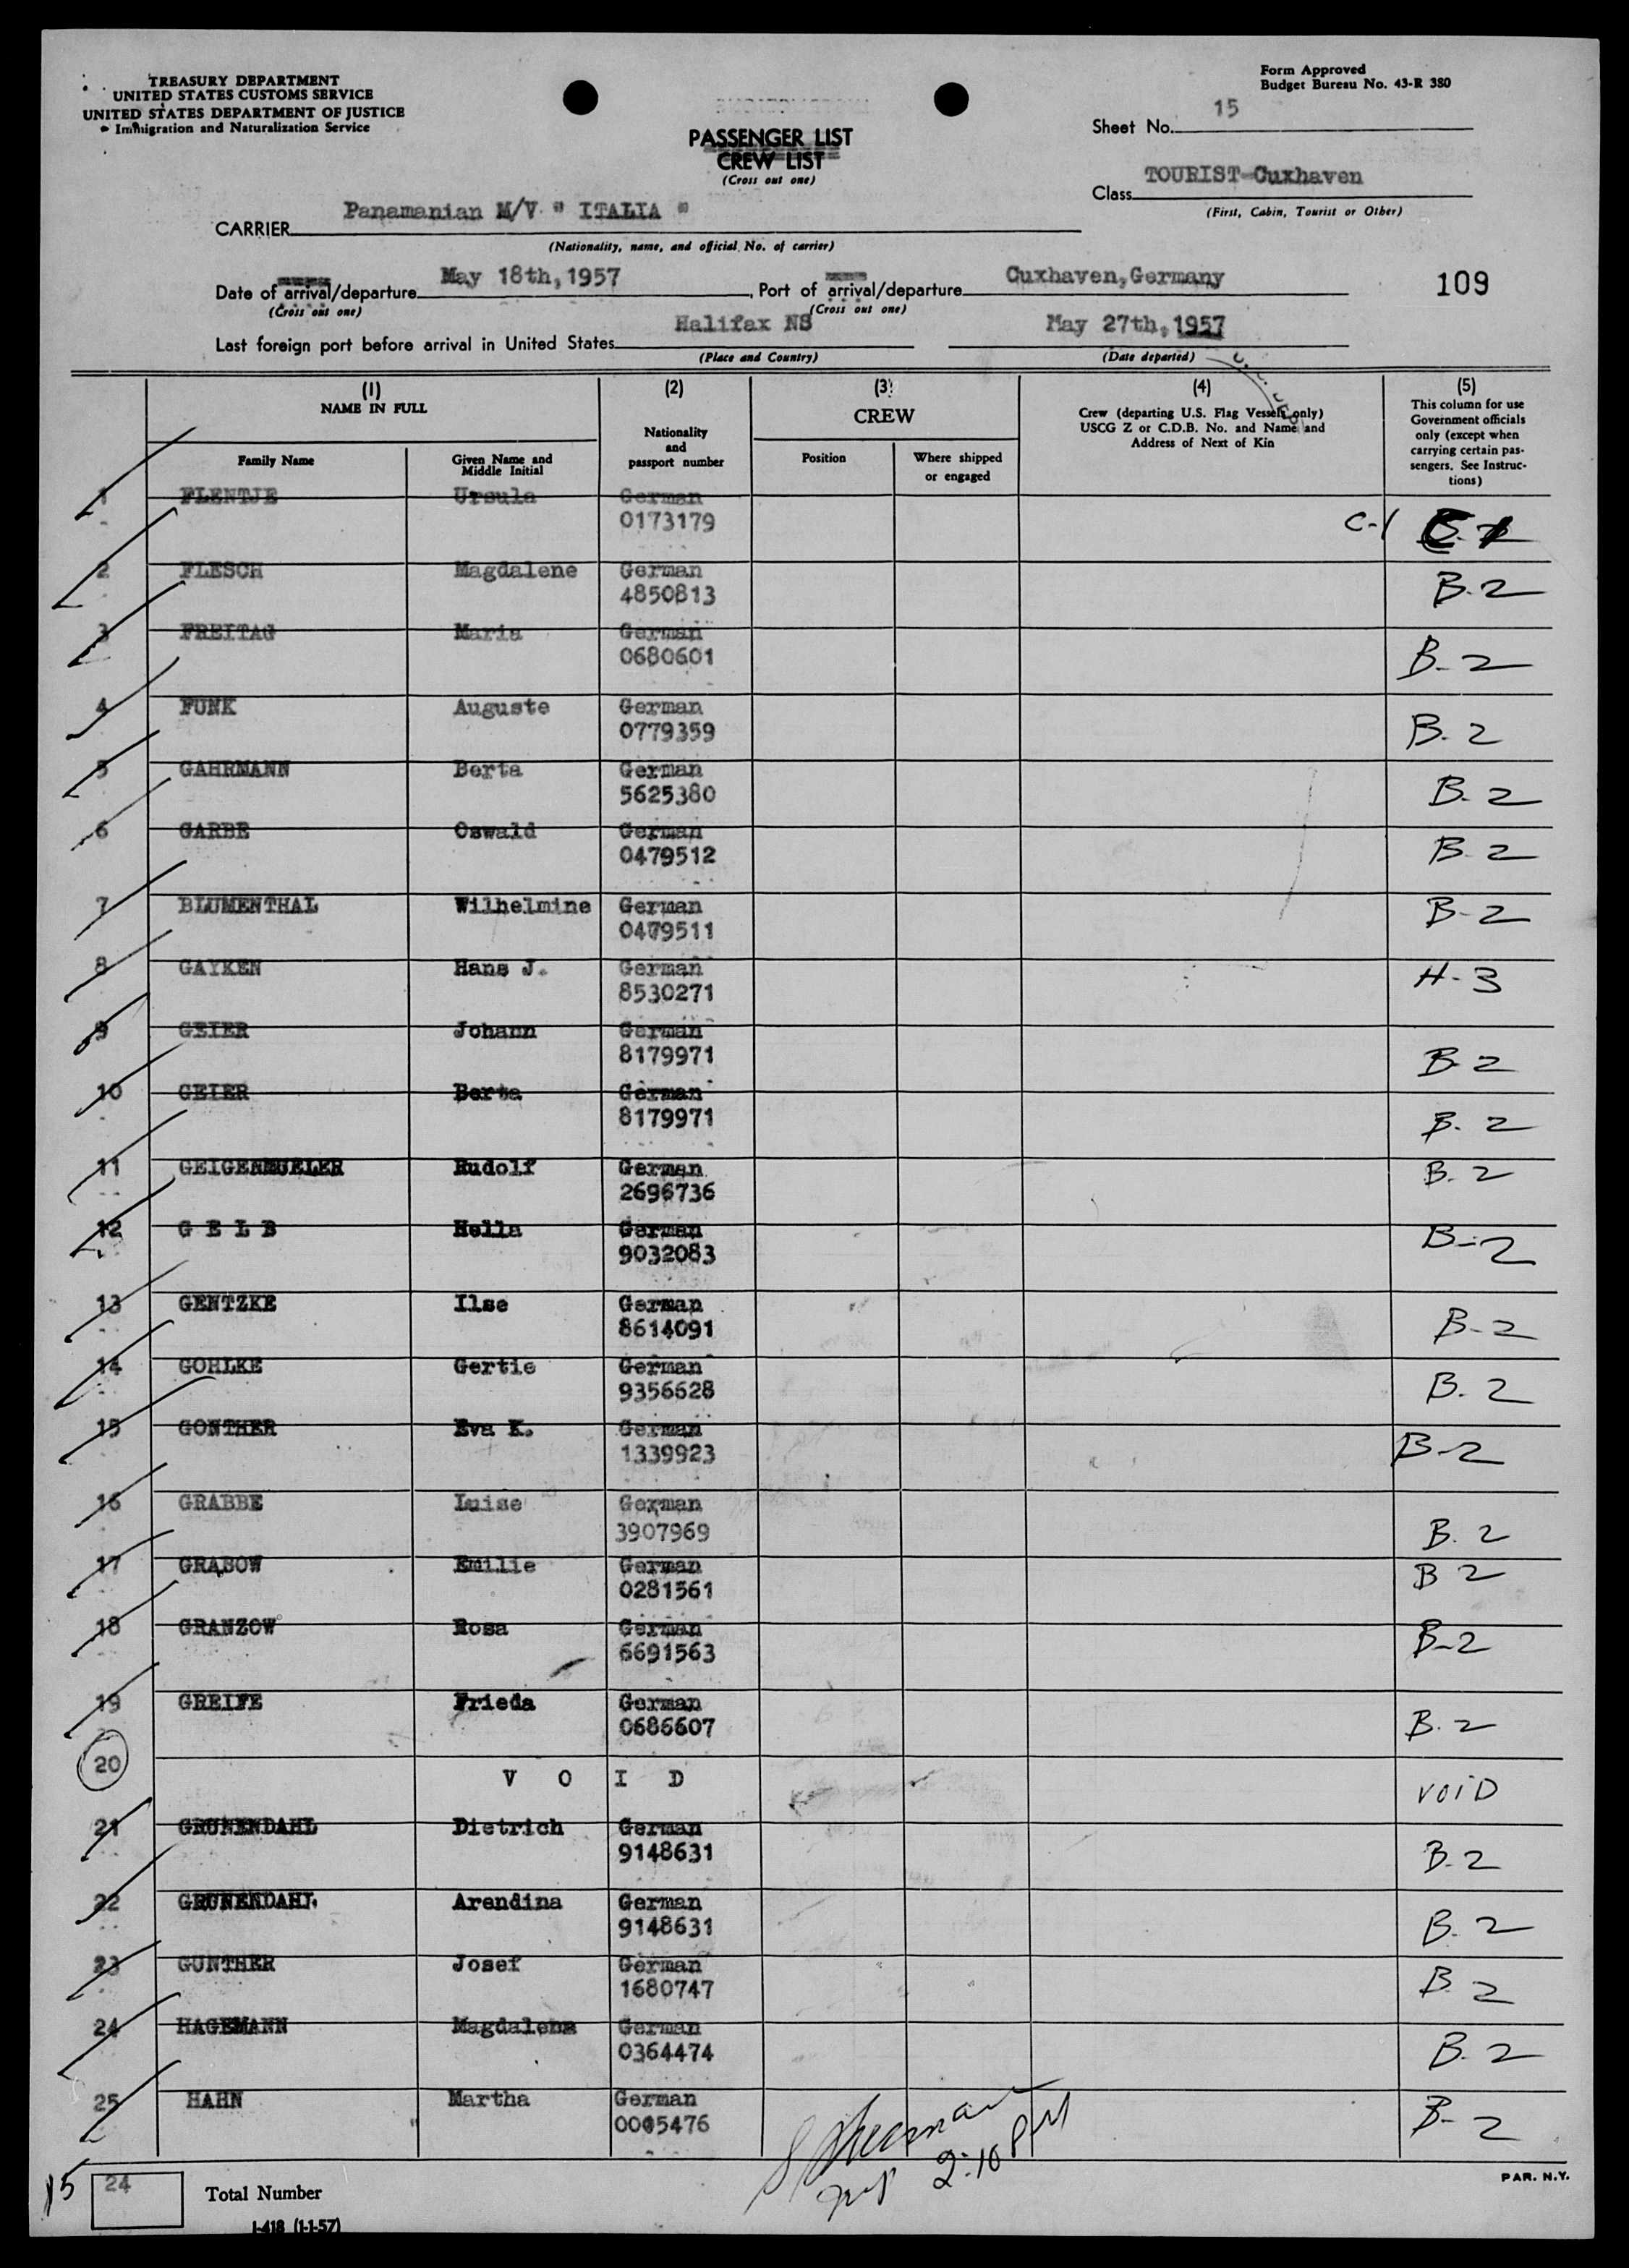 TREASURY DEPARTMENT
UNITED STATES CUSTOMS SERVICE
UNITED STATES DEPARTMENT OF JUSTICE
Immigration and Naturalization Service
Form Approved
Budget Bureau No. 43-R 380
PASSENGER LIST
CREW LIST
(Cross out one)
Sheet No. 15
Class TOURIST-Cuxhaven
(First, Cabin, Tourist or Other)
CARRIER Panamanian M/V " ITALIA "
(Nationality, name, and official No. of carrier)
Date of arrival/departure May 18th,1957, Port of arrival/departure Cuxhaven,Germany 109
(Cross out one) (Cross out one)
Last foreign port before arrival in United States Halifax NS May 27th, 1957
(Place and Country) (Date departed)
(1) (2) (3) (4) (5)
NAME IN FULL
Family Name
Given Name and
Middle Initial
Nationality
and
passport number
CREW
Position
Where shipped
or engaged
Crew (departing U.S. Flag Vessels only)
USCG Z or C.D.B. No. and Name and
Address of Next of Kin
This column for use
Government officials
only (except when
carrying certain pas-
sengers. See Instruc-
tions)
1 FLENTJE Ursula German
0173179 C-1
2 FLESCH Magdalene German
4850813 B-2
3 FREITAG Maria German
0680601 B-2
4 FUNK Auguste German
0779359 B-2
5 GAHRMANN Berta German
5625380 B-2
6 GARBE Oswald German
0479512 B-2
7 BLUMENTHAL Wilhelmine German
0479511 B-2
8 GAYKEN Hans J. German
8530271 H-3
9 GEIER Johann German
8179971 B-2
10 GEIER Berta German
8179971 B-2
11 GEIGERMUELER Rudolf German
2696736 B-2
12 G E L B Hella German
9032083 B-2
13 GENTZKE Ilse German
8614091 B-2
14 GOHLKE Gertie German
9356628 B-2
15 GONTHER Eva K. German
1339923 B-2
16 GRABBE Luise German
3907969 B-2
17 GRABOW Emilie German
0281561 B 2
18 GRANZOW Rosa German
6691563 B-2
19 GREIFE Frieda German
0686607 B-2
20 V O I D VOID
21 GRUNENDAHL Dietrich German
9148631 B-2
22 GRUNENDAHL Arendina German
9148631 B-2
23 GUNTHER Josef German
1680747 B 2
24 HAGEMANN Magdalena German
0364474 B-2
25 HAHN Martha German
0005476 B-2
2:10 PM
PAR. N.Y.
15 24 Total Number
I-418 (1-1-57)